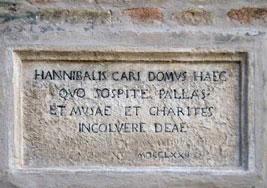 HANNIBALIS CARI DOMVS HAEC
QVO SOSPITE PALLAS
ET MVSAE ET CHARITES
INCOLVERE DEAE